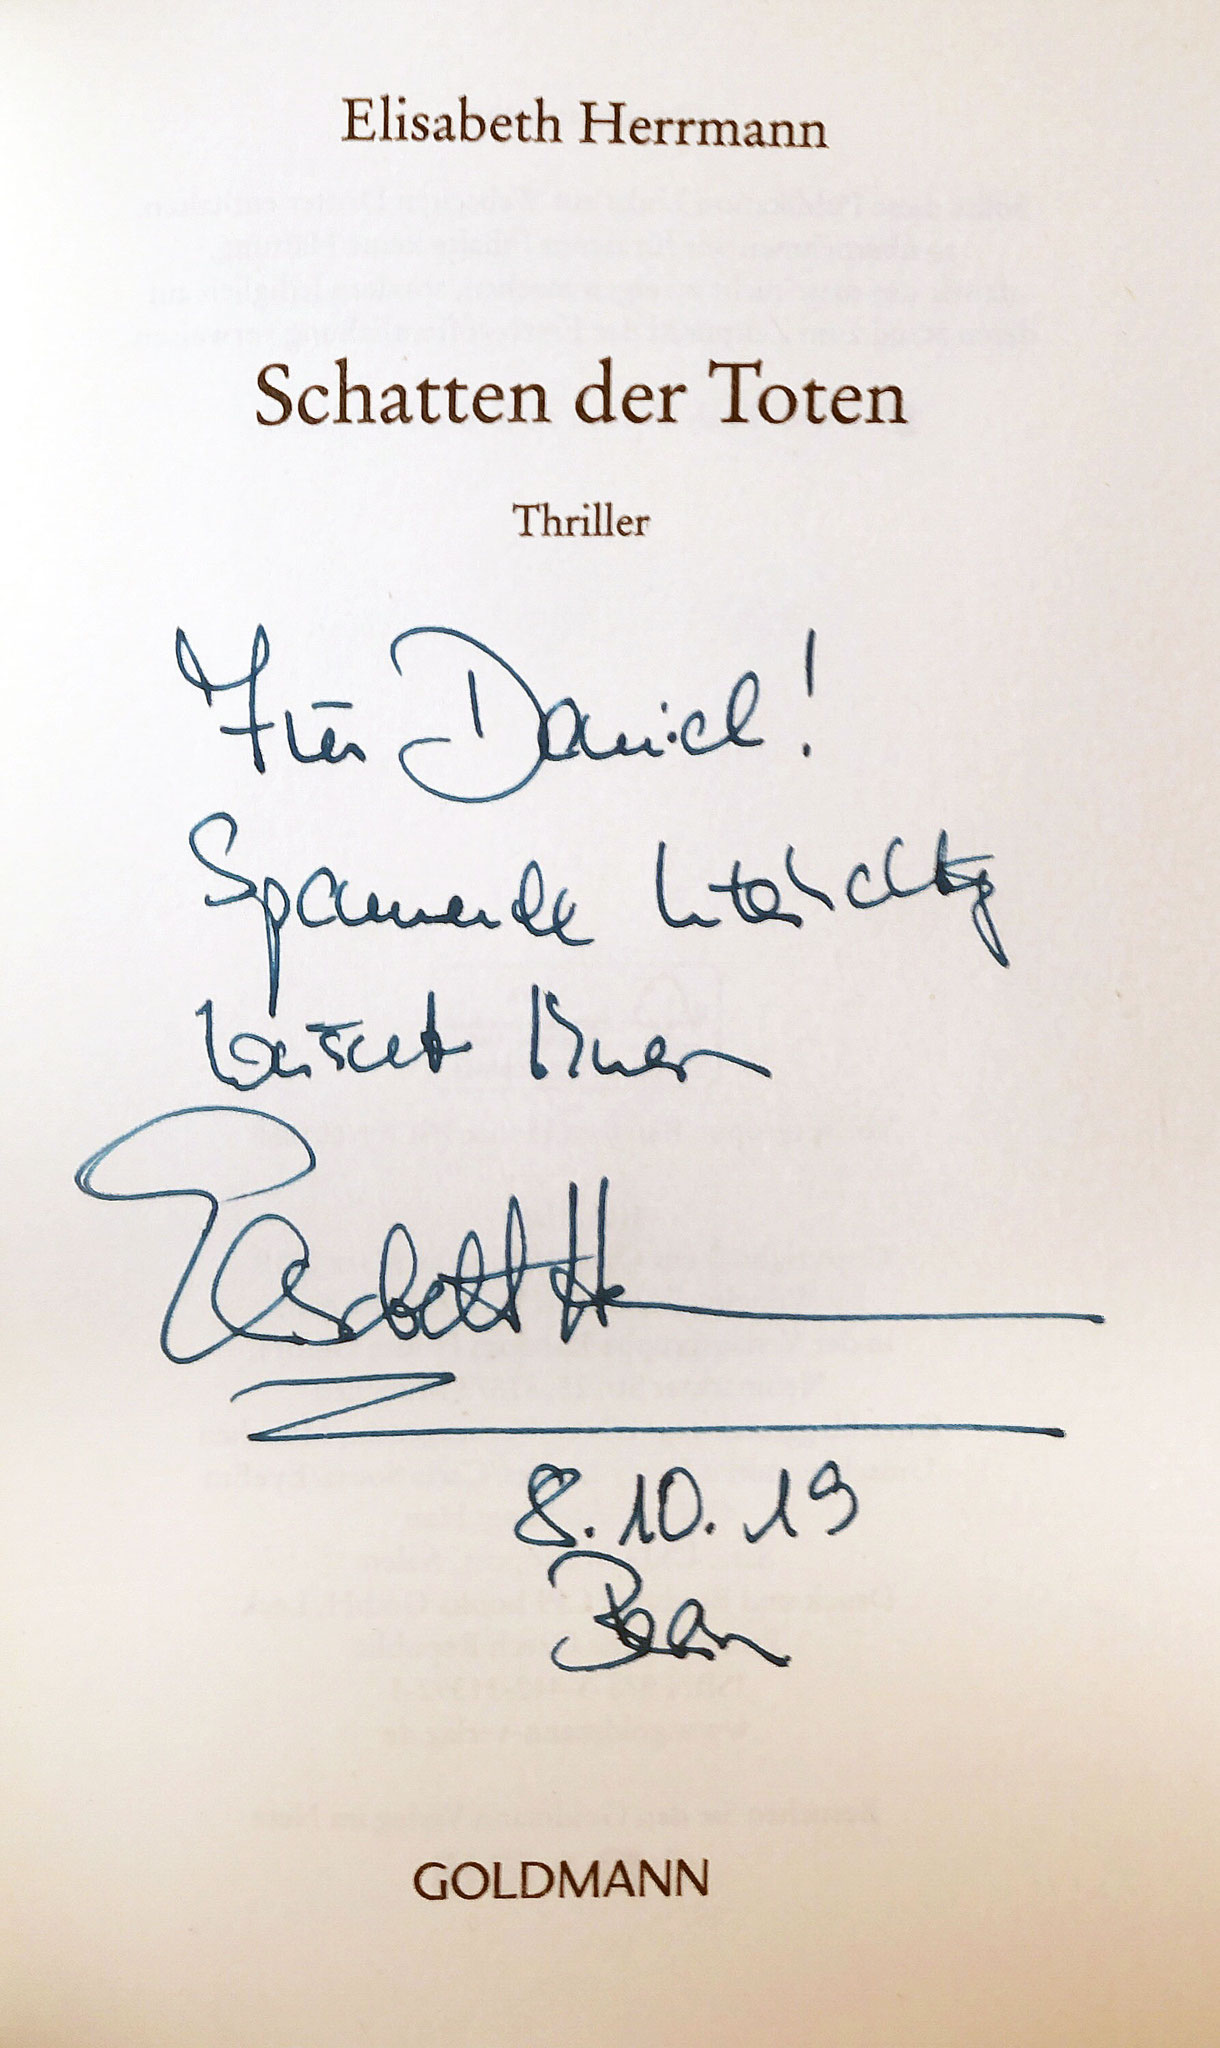 Elisabeth Herrmann
Schatten der Toten
Thriller
Für Daniel!
Spannende Unterhaltung
wünscht Ihnen
Elisabeth Herrmann
8.10.19
GOLDMANN